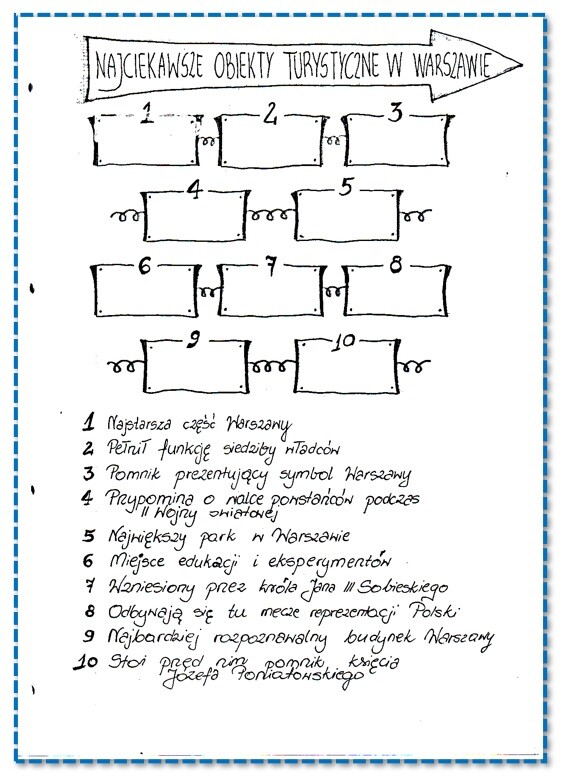 NAJCIEKAWSZE OBIEKTY TURYSTYCZNE W WARSZAWIE
1 2 3
4 5
6 7 8
9 10
1 Najstarsza część Warszawy
2 Pełnił funkcję siedziby władców
3 Pomnik prezentujący symbol Warszawy
4 Przypomina o walce powstańców podczas
II Wojny światowej
5 Największy park w Warszawie
6 Miejsce edukacji i eksperymentów
7 Wzniesiony przez króla Jana III Sobieskiego
8 Odbywają się tu mecze reprezentacji Polski
9 Najbardziej rozpoznawalny budynek Warszawy
10 Stoi przed nim pomnik księcia
Józefa Poniatowskiego